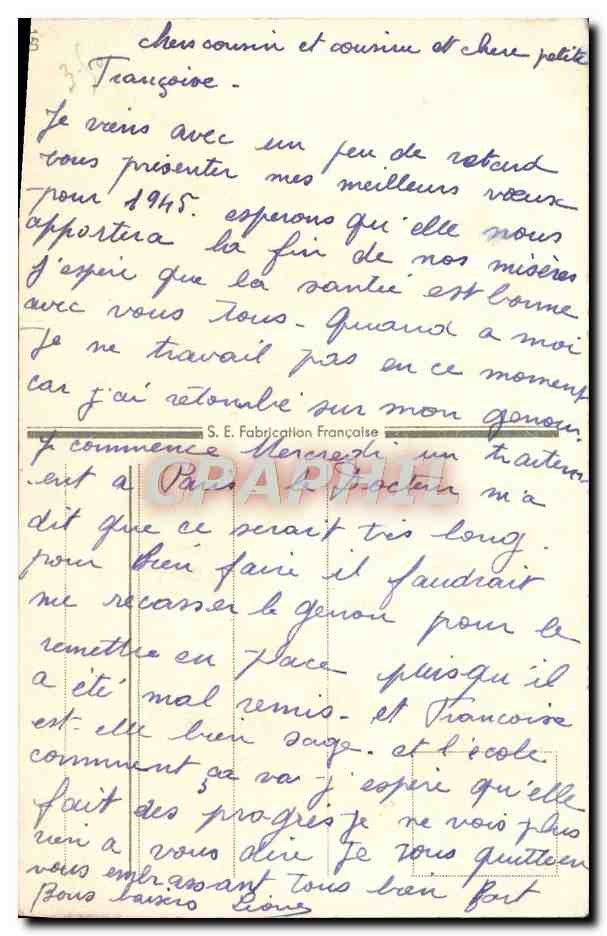 chers cousin et cousine et chere petite
Françoise.
Je viens avec un peu de retard
vous présenter mes meilleurs vœux
pour 1945. esperons qu'elle nous
apportera la fin de nos misères
J'espère que la santé est bonne
avec vous tous - Quand a moi
Je ne travail pas en ce moment
car j'ai retombé sur mon genou.
S. E. Fabrication Française
Je commence Mercredi un traitem
ent a Paris le Docteur m'a
CRAPHIL
dit que ce serait très long.
pour bien faire il faudrait
me recasser le genou pour le
remettre en place puisqu'il
a été mal remis - et Francoise
est-elle bien sage. et l'école
comment ça va - j'espère qu'elle
fait des progrès Je ne vois plus
rien a vous dire Je vous quitte en
vous embrassant tous bien fort
Bons baisers